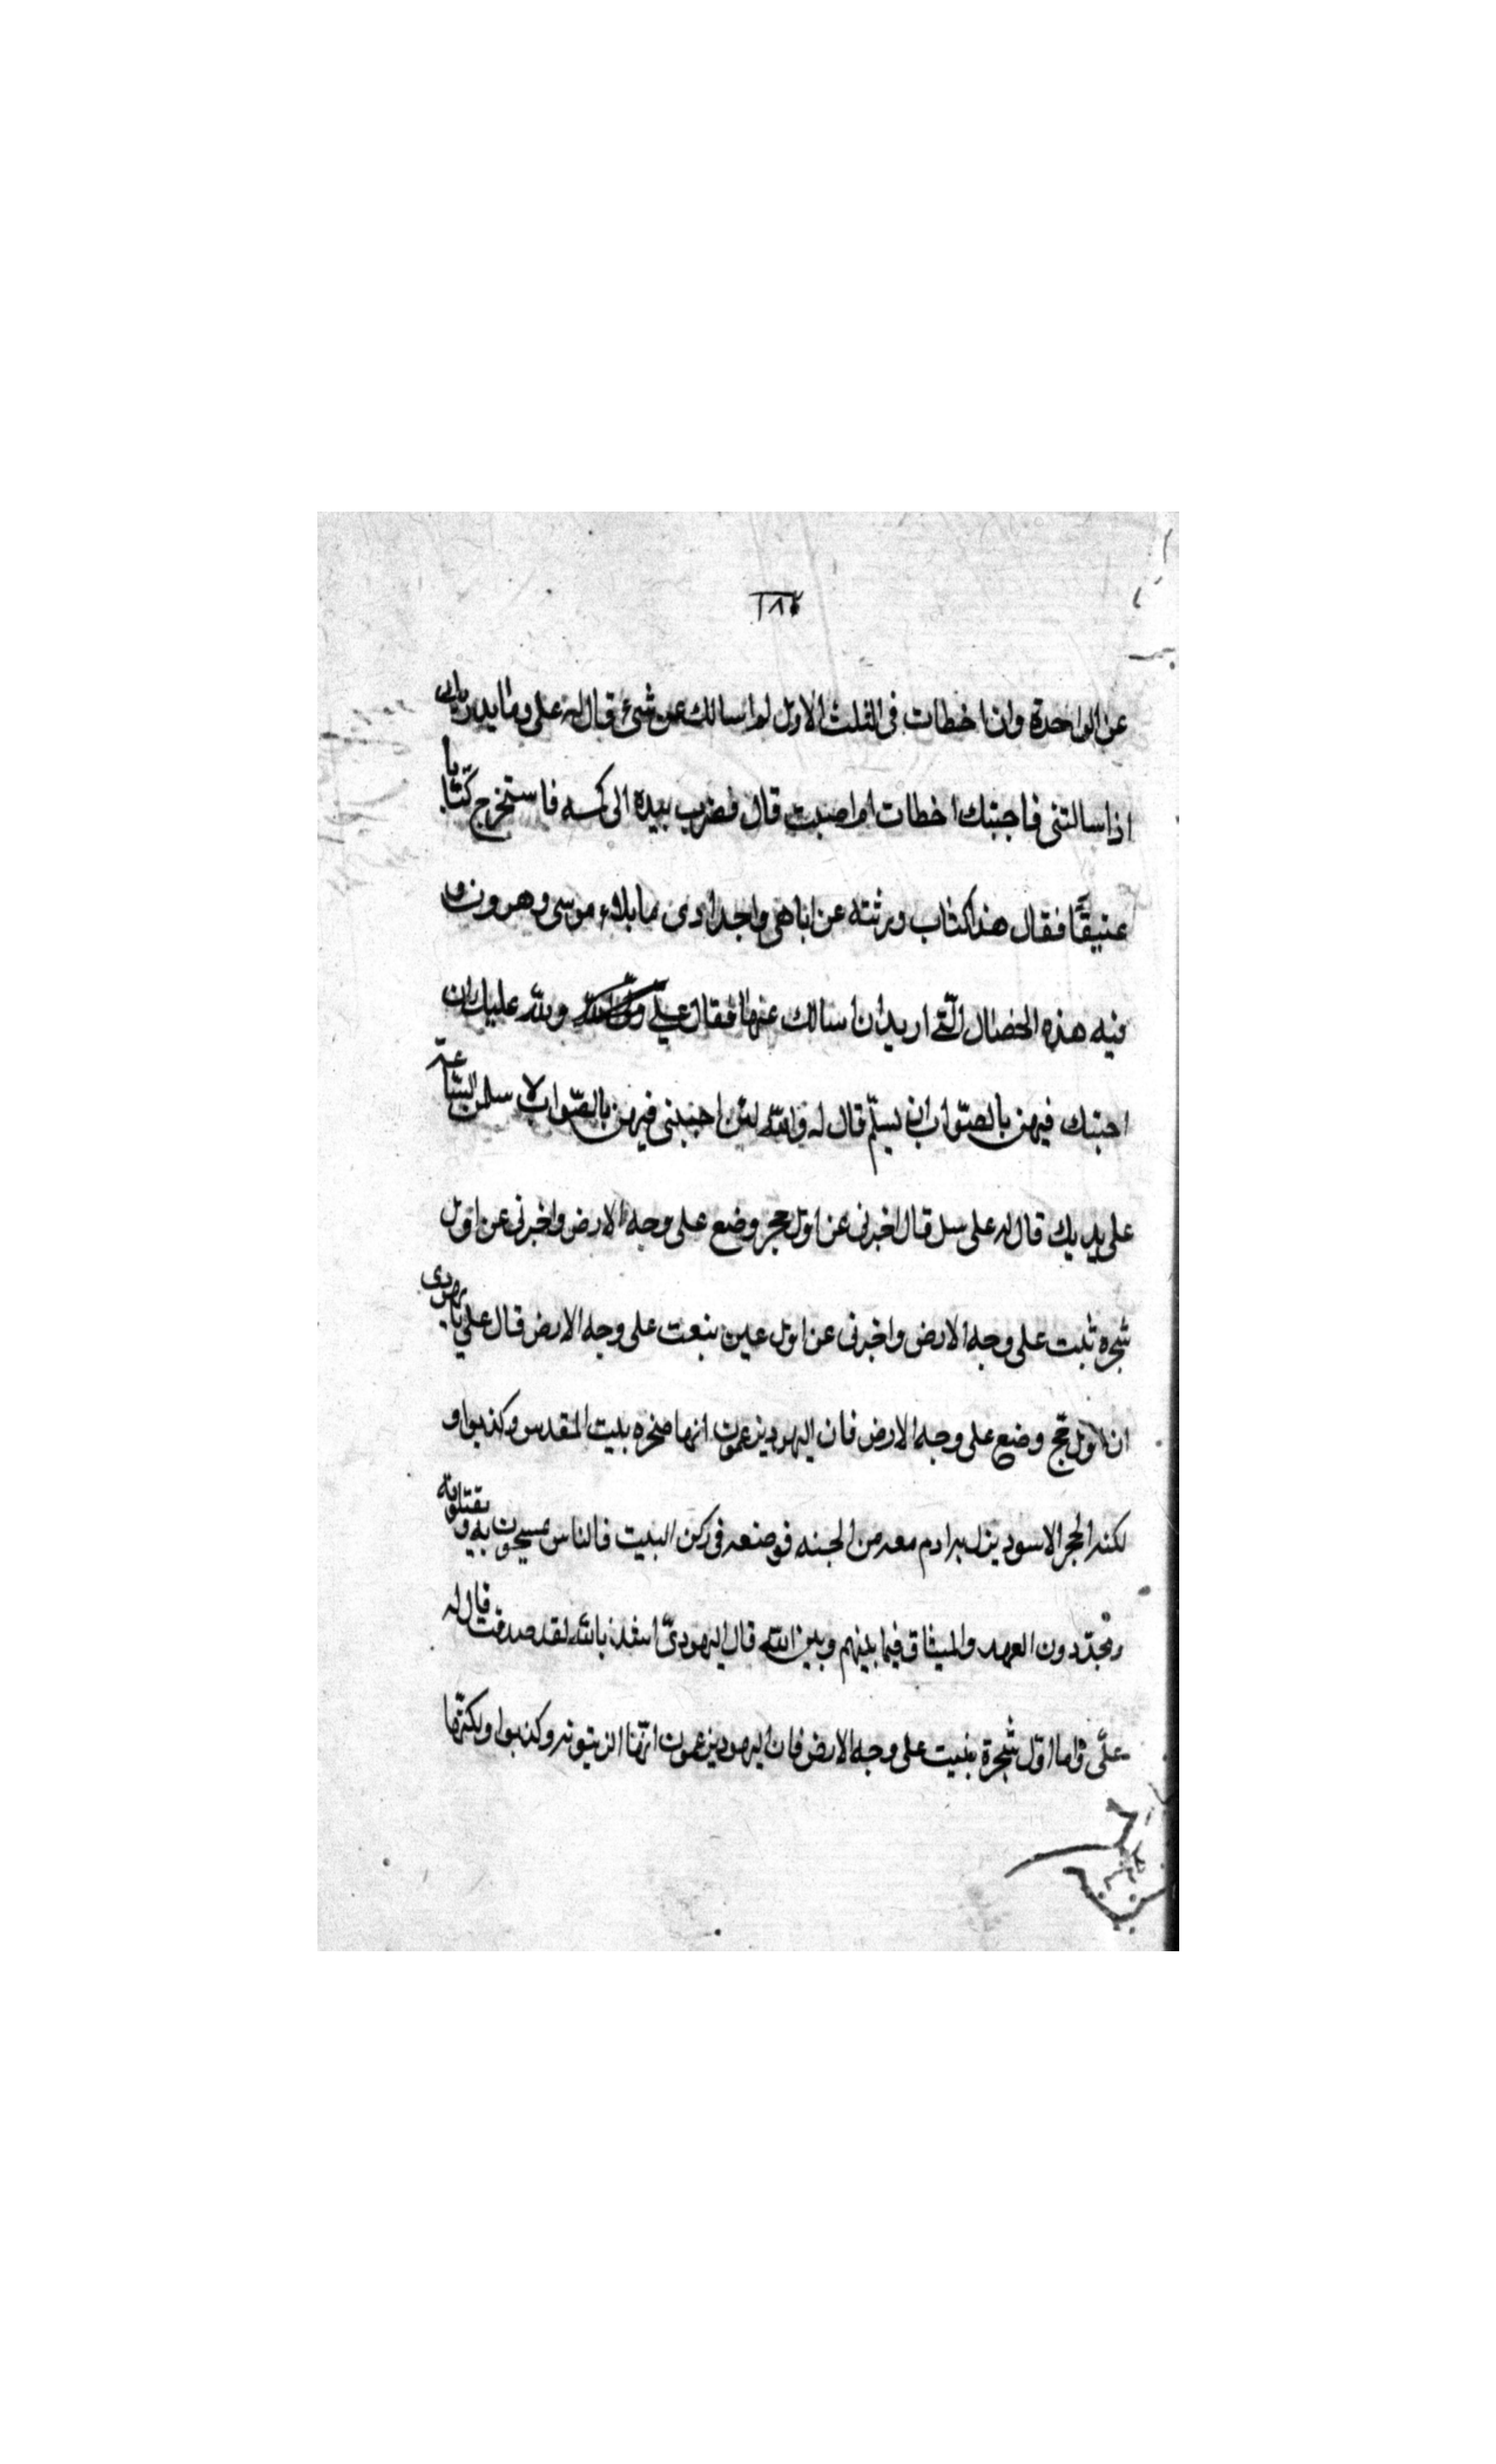 ١٨٤
عن الواحدة وان اخطات فى الثلث الاول لم اسالك عن شىء قال له على وما يدريك
اذا سالتنى فاجبتك اخطات ام اصبت قال فضرب بيده الى كمه فاستخرج كتابا
عتيقًا فقال هذا كتاب ورثته عن اباهى واجدادى باملاء موسى وهرون و
فيه هذه الخصال الّتى اريد ان اسالك عنها فقال علىّ ولله عليك ان
اجبتك فيهن بالصّواب ان تسلّم قال له والله لئن اجبتنى فيهن بالصّواب لا سلمن السّاعة
على يديك قال له على سل قال اخبرنى عن اول حجر وضع على وجه الارض واخبرنى عن اول
شجره نبت على وجه الارض واخبرنى عن اول عين نبعت على وجه الارض قال على يا يهودى
ان اول حجر وضع على وجه الارض فان اليهود يزعمون انها صخره بيت المقدس وكذبوا و
لكنه الحجر الاسود ينزل به ادم معه من الجنه فوضعه فى ركن البيت فالناس يمسحون به ويقتلونه
ويجدّدون العهد والميثاق فيما بينهم وبين الله قال اليهودىّ اشهد بالله لقد صدقت قال له
علّى واما اول شجرة نبت على وجه الارض فان اليهود يزعمون انّها الزيتونه وكذبوا ولكنّها